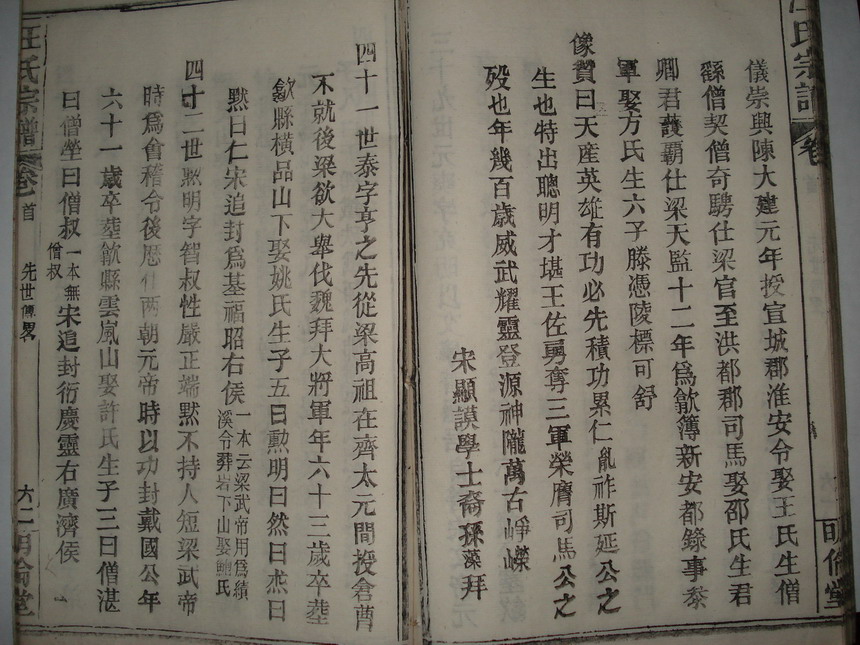 汪氏宗譜
卷
明倫堂
儀崇興陳大建元年授宣城郡淮安令娶王氏生僧
繇僧契僧奇騁仕梁官至洪都郡司馬娶邵氏生君
卿君護霸仕梁天監十二年爲歙簿新安都錄事叅
軍娶方氏生六子滕憑陵標可舒
像贊曰天產英雄有功必先積功累仁胤祚斯延公之
生也特出聰明才堪王佐勇奪三軍榮膺司馬公之
歿也年幾百歲威武耀靈登源神隴萬古崢嶸
宋顯謨學士裔孫藻拜
四十一世泰字亨之先從梁高祖在齊太元間授倉曹
不就後梁欲大舉伐魏拜大將軍年六十三歲卒塟
歙縣橫品山下娶姚氏生子五曰勲明曰然曰烋曰
黙曰仁宋追封爲基福昭右侯一本云梁武帝用爲績
溪令葬岩下山娶鮑氏
四十二世勲明字智叔性嚴正端默不持人短梁武帝
時爲會稽令後歷仕两朝元帝時以功封戴國公年
六十一歲卒塟歙縣雲嵐山娶許氏生子三曰僧湛
曰僧塋曰僧叔一本無
僧叔宋追封衍慶靈右廣濟侯
汪氏宗譜
卷首
先世傳畧
六二
明倫堂